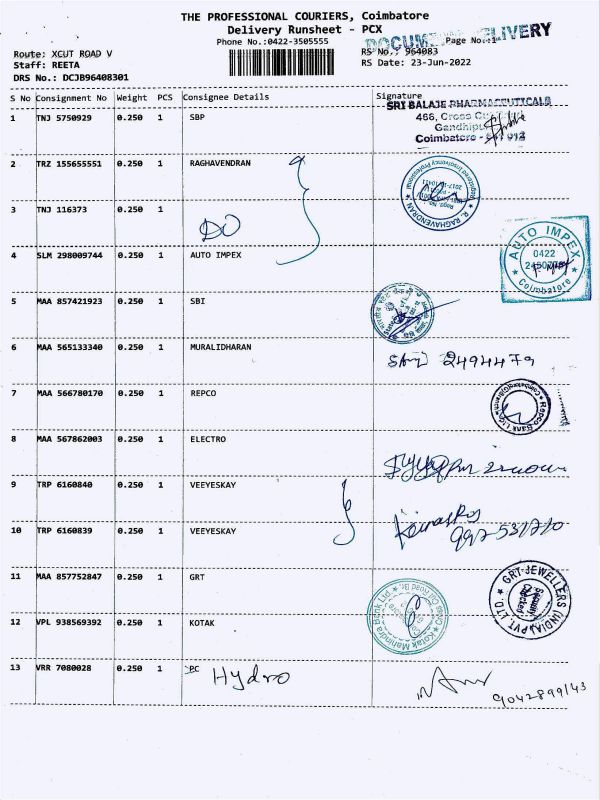 THE PROFESSIONAL COURIERS, Coimbatore
Delivery Runsheet - PCX
DOCUMENT DELIVERY
Phone No.:0422-3505555
Page No.:1
Route: XCUT ROAD V
RS No.: 964083
Staff: REETA
RS Date: 23-Jun-2022
DRS No.: DCJB96408301
S No Consignment No Weight PCS Consignee Details Signature
1 TNJ 5750929 0.250 1 SBP
SRI BALAJE PHARMACEUTICALS
468, Cross Cut
Coimbatore - 641 012
2 TRZ 155655551 0.250 1 RAGHAVENDRAN
R. RAGHAVENDRAN
Registered Insolvency Professional
3 TNJ 116373 0.250 1
DO
4 SLM 298009744 0.250 1 AUTO IMPEX
AUTO IMPEX
0422
Coimbatore
5 MAA 857421923 0.250 1 SBI
6 MAA 565133340 0.250 1 MURALIDHARAN
2494479
7 MAA 566780170 0.250 1 REPCO
Repco Bank Ltd.
8 MAA 567862003 0.250 1 ELECTRO
9 TRP 6160840 0.250 1 VEEYESKAY
10 TRP 6160839 0.250 1 VEEYESKAY
11 MAA 857752847 0.250 1 GRT
GRT-JEWELLERS (INDIA) PVT. LTD.
12 VPL 938569392 0.250 1 KOTAK
Kotak Mahindra Bank Ltd.
13 VRR 7080028 0.250 1 PC
Hydro
9042899143